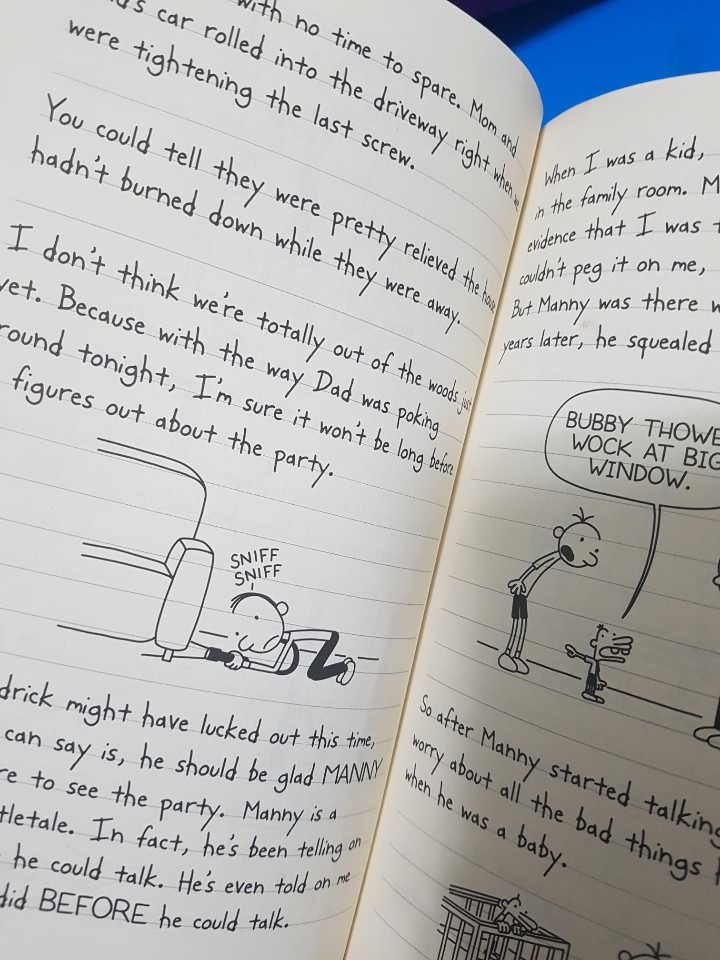 with no time to spare. Mom and
car rolled into the driveway right when
were tightening the last screw.
You could tell they were pretty relieved the house
hadn't burned down while they were away.
I don't think we're totally out of the woods just
yet. Because with the way Dad was poking
round tonight, I'm sure it won't be long before
figures out about the party.
SNIFF
SNIFF
drick might have lucked out this time,
can say is, he should be glad MANNY
re to see the party. Manny is a
tletale. In fact, he's been telling on
he could talk. He's even told on me
did BEFORE he could talk.
When I was a kid,
in the family room. M
evidence that I was
couldn't peg it on me,
But Manny was there w
years later, he squealed
BUBBY THOWE
WOCK AT BIG
WINDOW.
So after Manny started talking
worry about all the bad things
when he was a baby.